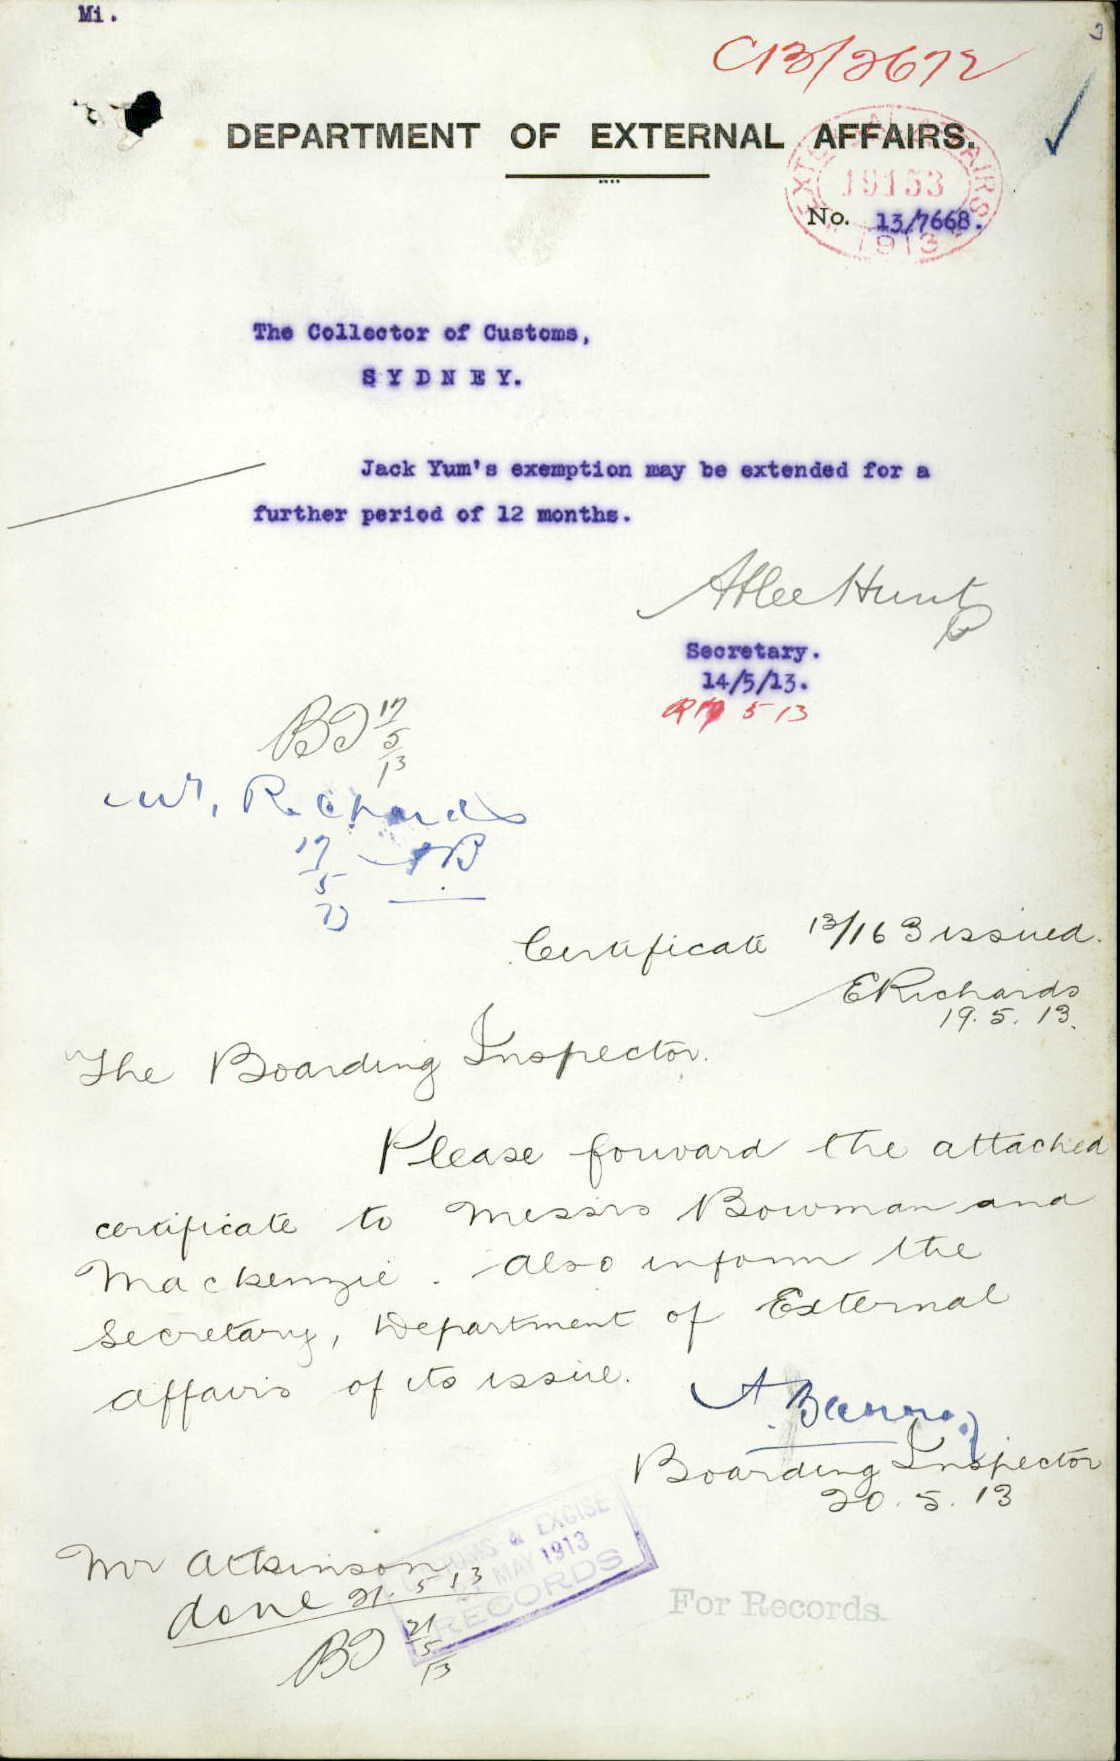 Mi.
C13/2672
DEPARTMENT OF EXTERNAL AFFAIRS.
EXTERNAL AFFAIRS
19153
1913
No. 13/7668.
The Collector of Customs,
SYDNEY.
Jack Yum's exemption may be extended for a
further period of 12 months.
Atlee Hunt
Secretary.
14/5/13.
5 13
BI 17/5/13
Mr. Richards
17/5/13 AB
Certificate 13/163 issued.
ERichards
19.5.13.
The Boarding Inspector.
Please forward the attached
certificate to Messrs Bowman and
Mackenzie. Also inform the
Secretary, Department of External
Affairs of its issue.
A.
Boarding Inspector
20.5.13
Mr Atkinson
done 21.5.13
BI 21/5/13
CUSTOMS & EXCISE
MAY 1913
RECORDS
For Records.